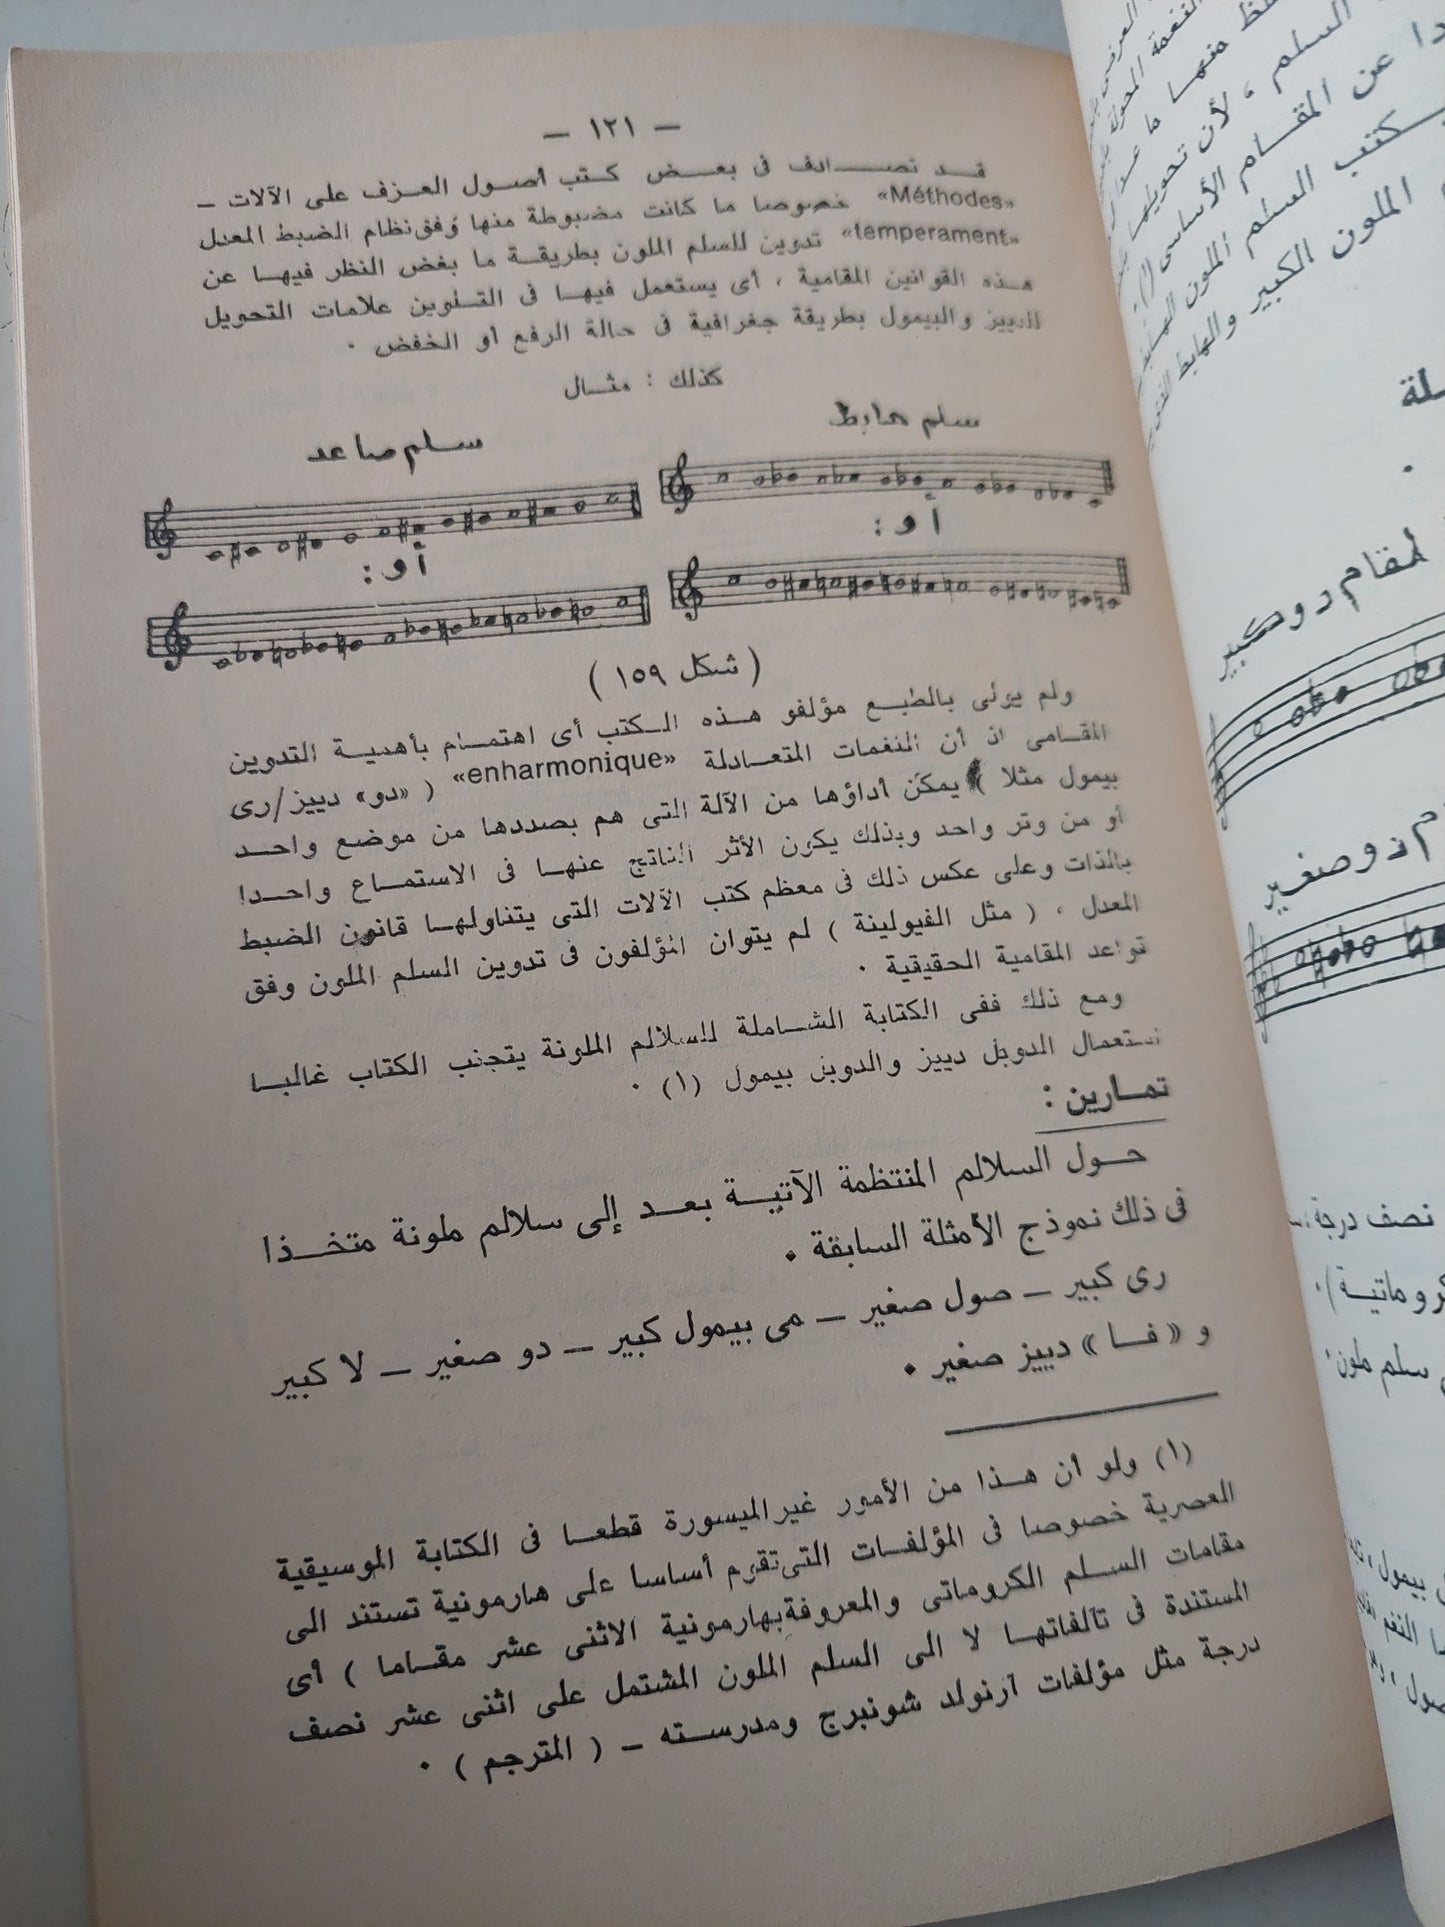 — ١٢١ —
قـد تصـــادف فى بعــض كـتب أصـول العـزف على الآلات —
«Méthodes» خصوصا ما كانت مضبوطة منها وفق نظام الضبط المعدل
«temperament» تدوين للسلم الملون بطريقـة ما بغض النظر فيهـا عن
هـذه القوانين المقامية ، أى يستعمل فيهـا فى التـلوين علامات التحويل
الدييز والبيمول بطريقة جغرافية فى حالة الرفع أو الخفض .
كذلك : مثـال
سلم صاعد
سلم هابط
أو :
أو :
( شكل ١٥٩ )
ولم يولى بالطبـع مؤلفو هـذه الـكتب أى اهتمـام بأهميـة التدوين
المقـامى اذ أن النغمات المتعـادلة «enharmonique» ( «دو» دييز/رى
بيمول مثلا ) يمكن أداؤها من الآلة التى هم بصددها من موضع واحـد
أو من وتر واحد وبذلك يكون الأثر الناتج عنهـا فى الاستمـاع واحـدا
بالذات وعلى عكس ذلك فى معظم كتب الآلات التى يتناولهـا قانون الضبط
المعدل ، ( مثل الفيولينة ) لم يتوان المؤلفون فى تدوين السلم الملون وفق
قواعد المقامية الحقيقية .
ومع ذلك ففى الكتابة الشـاملة للسلالم الملونة يتجنب الكتاب غالبـا
استعمال الدوبل دييز والدوبل بيمول (١) .
تمـارين :
حـول السلالم المنتظمة الآتيـة بعـد إلى سلالم ملونة متخـذا
فى ذلك نموذج الأمثلة السابقة .
رى كبير — صول صغير — مى بيمول كبير — دو صغير — لا كبير
و «فـا» دييز صغير .
(١) ولو أن هـذا من الأمور غير الميسورة قطعـا فى الكتابة الموسيقية
العصرية خصوصا فى المؤلفـات التى تقوم أساسا على هارمونية تستند الى
مقامات السـلم الكروماتى والمعروفة بهارمونية الاثنى عشر مقـاما ) أى
المستندة فى تآلفاتهـا لا الى السلم الملون المشتمل على اثنى عشر نصف
درجة مثل مؤلفات آرنولد شونبرج ومدرسـته — ( المترجم ) .
السلم ، لأن تحويلهـا
عن المقـام الأساسى (١).
كتب السلم الملون
الملون الكبير والهابط
لمقام دو كبير
دو صغير
نصف درجة
سلم ملون .